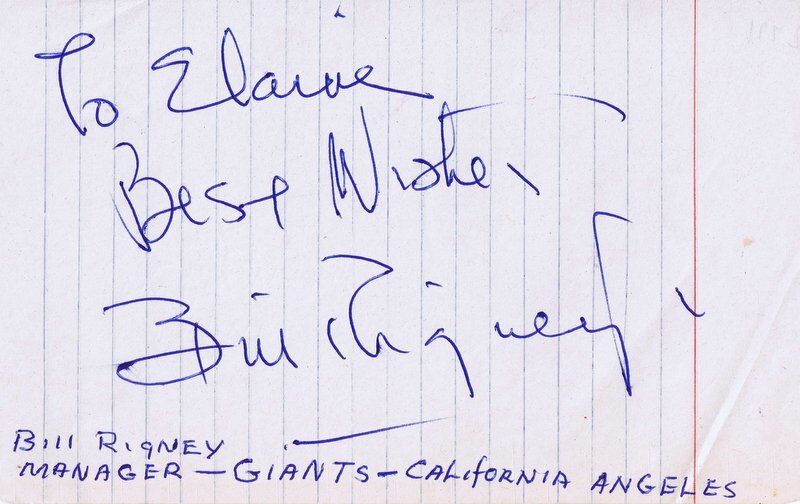 To Elaine
Best Wishes
Bill Rigney
Bill RIGNEY
MANAGER — GIANTS — CALIFORNIA ANGELES